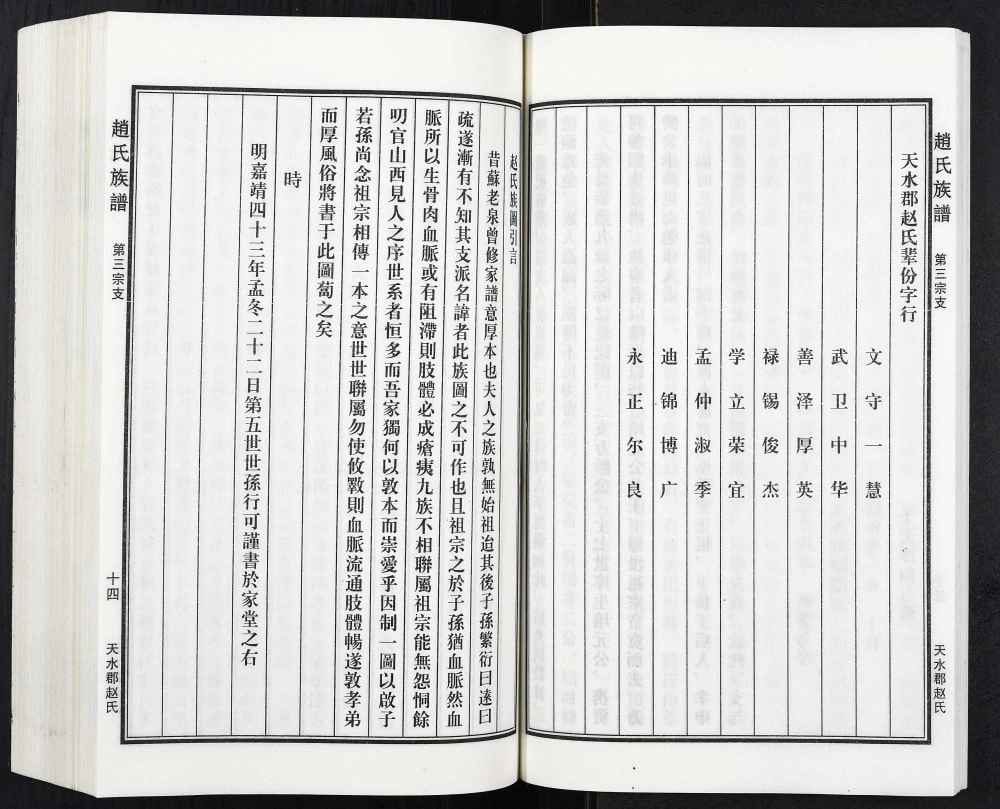 趙氏族譜
第三宗支
天水郡赵氏
天水郡赵氏辈份字行
文守一慧
武卫中华
善泽厚英
禄锡俊杰
学立荣宜
孟仲淑季
迪锦博广
永正尔良
赵氏族圖引言
昔蘇老泉曾修家譜意厚本也夫人之族孰無始祖迨其後子孫繁衍日遠日
疏遂漸有不知其支派名諱者此族圖之不可作也且祖宗之於子孫猶血脈然血
脈所以生骨肉血脈或有阻滯則肢體必成瘡痍九族不相聯屬祖宗能無怨恫餘
叨官山西見人之序世系者恒多而吾家獨何以敦本而崇愛乎因制一圖以啟子
若孫尚念祖宗相傳一本之意世世聯屬勿使攸斁則血脈流通肢體暢遂敦孝弟
而厚風俗將書于此圖蔔之矣
時
明嘉靖四十三年孟冬二十二日第五世世孫行可謹書於家堂之右
趙氏族譜
第三宗支
十四
天水郡赵氏